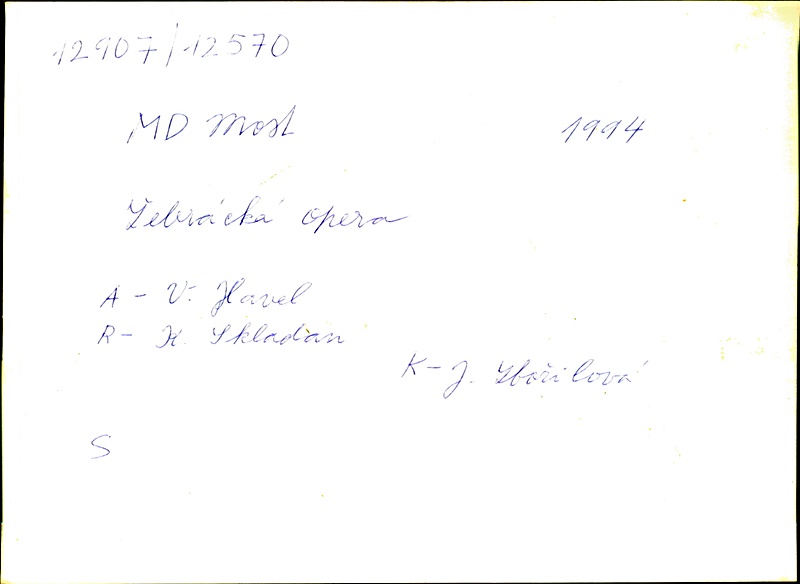 12907/12570
MD Most 1994
Žebrácká opera
A - V. Havel
R - K. Skladan
K - J. Zbořilová
S